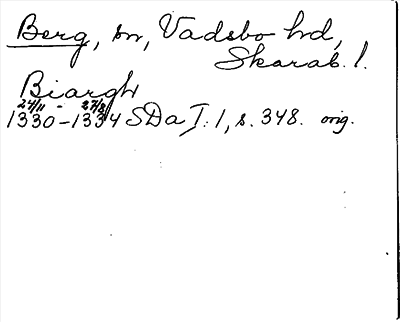 Berg, sn, Vadsbo hd,
Skarab. l.
Biargh
24/11 - 27/8
1330-1334 SDa I: 1, s. 348. orig.